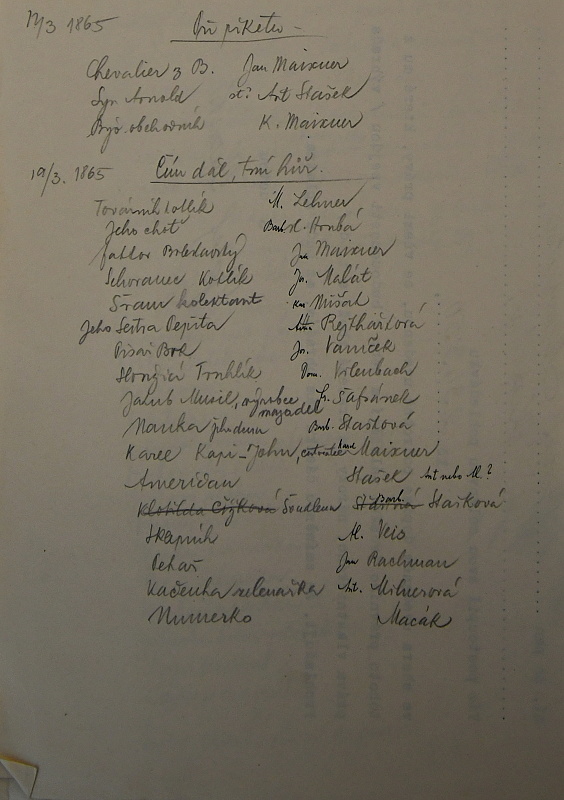 12/3 1865 Při piketu -
Chevalier z B. Jan Maixner
Syn Arnold st? Ant Stašek
Býv. obchodník K. Maixner
19/3. 1865 Čím dál, tím hůř.
Továrník Kotlík M. Lehner
Jeho choť Hrubá
faktor Boleslavský Jan Maixner
Kotlík Jos. Malát
Šram kolektant
Jeho Sestra Pepita Rejthářková
Písař Bok Jos. Vaníček
Sloužící Truhlík Dom. Vilenbach
Jakub Musil, výrobce mazadel Fr. Šafránek
Nanka Barb. Stašková
Karel Kapi-John, cestovatel Karel Maixner
Američan Stašek Ant nebo M.?
Klotilda Čížková Barb. Stašková
Škapník Al. Veis
Pekař Jan Rachman
Kačenka zelenařka Ant. Milnerová
Numerko Macák